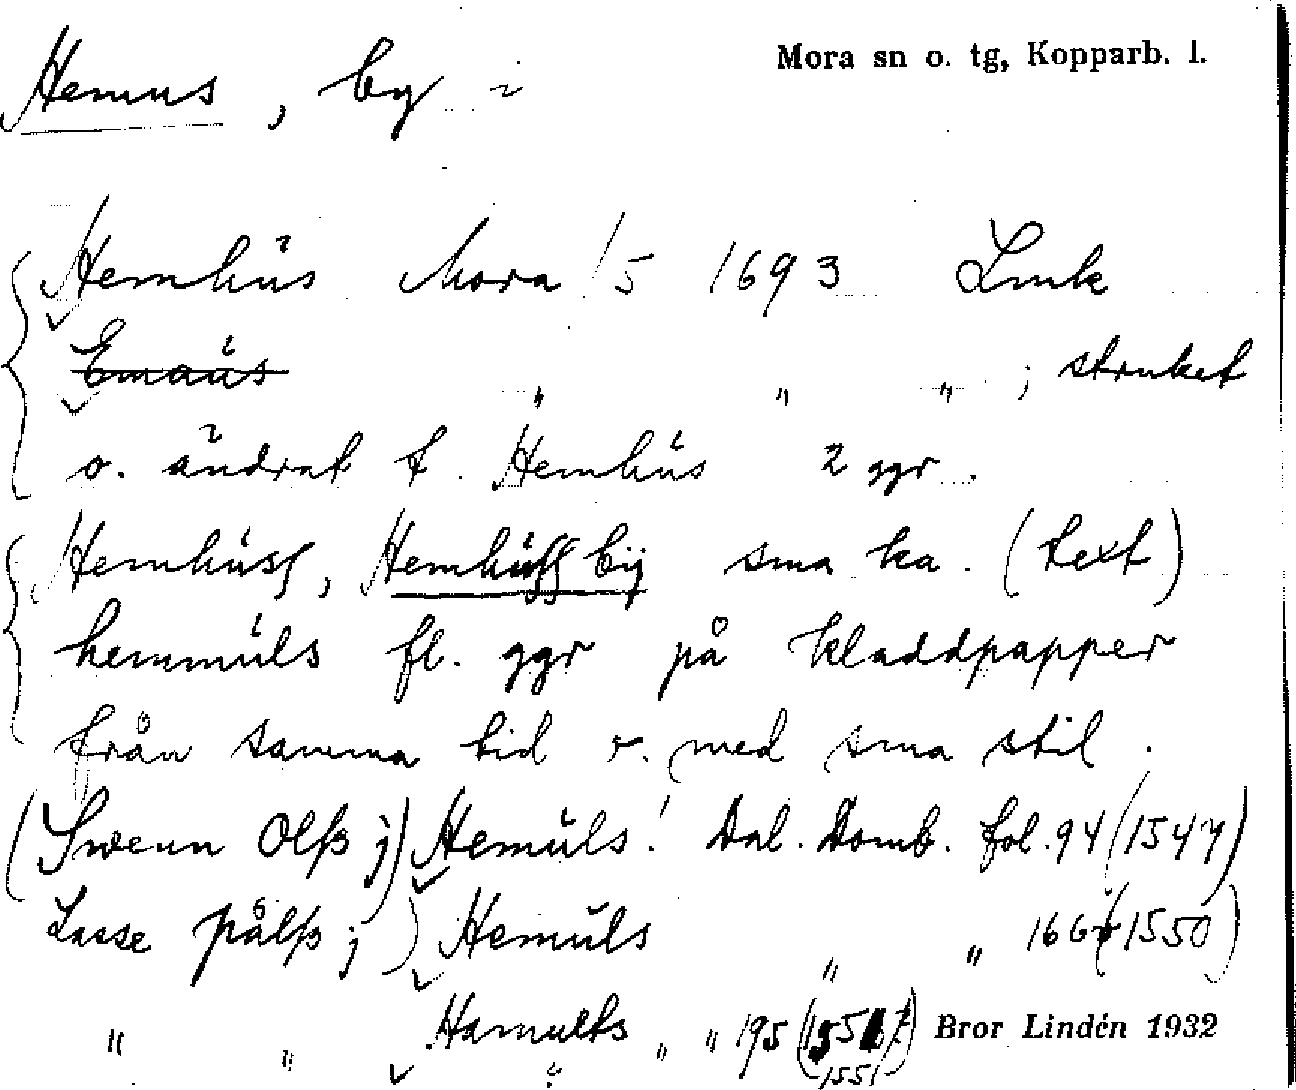 Mora sn o. tg, Kopparb. l.
Hemus, by
Hemhús Mora 1/5 1693 Lmk
Emaús " " " ; struket
o. ändrat t. Hemhús 2 ggr.
Hemhúsſ, Hemhúſſ bÿ sma ka. (text)
hemmúls fl. ggr på kladdpapper
från samma tid o. med sma stil.
(Swenn Olſs j) Hemúls! Dal. Domb. fol. 94 (1547)
Lasse pålſs j) Hemúls " " 166 (1550)
" " Hamults " " 195 (1551)
1551
Bror Lindén 1932